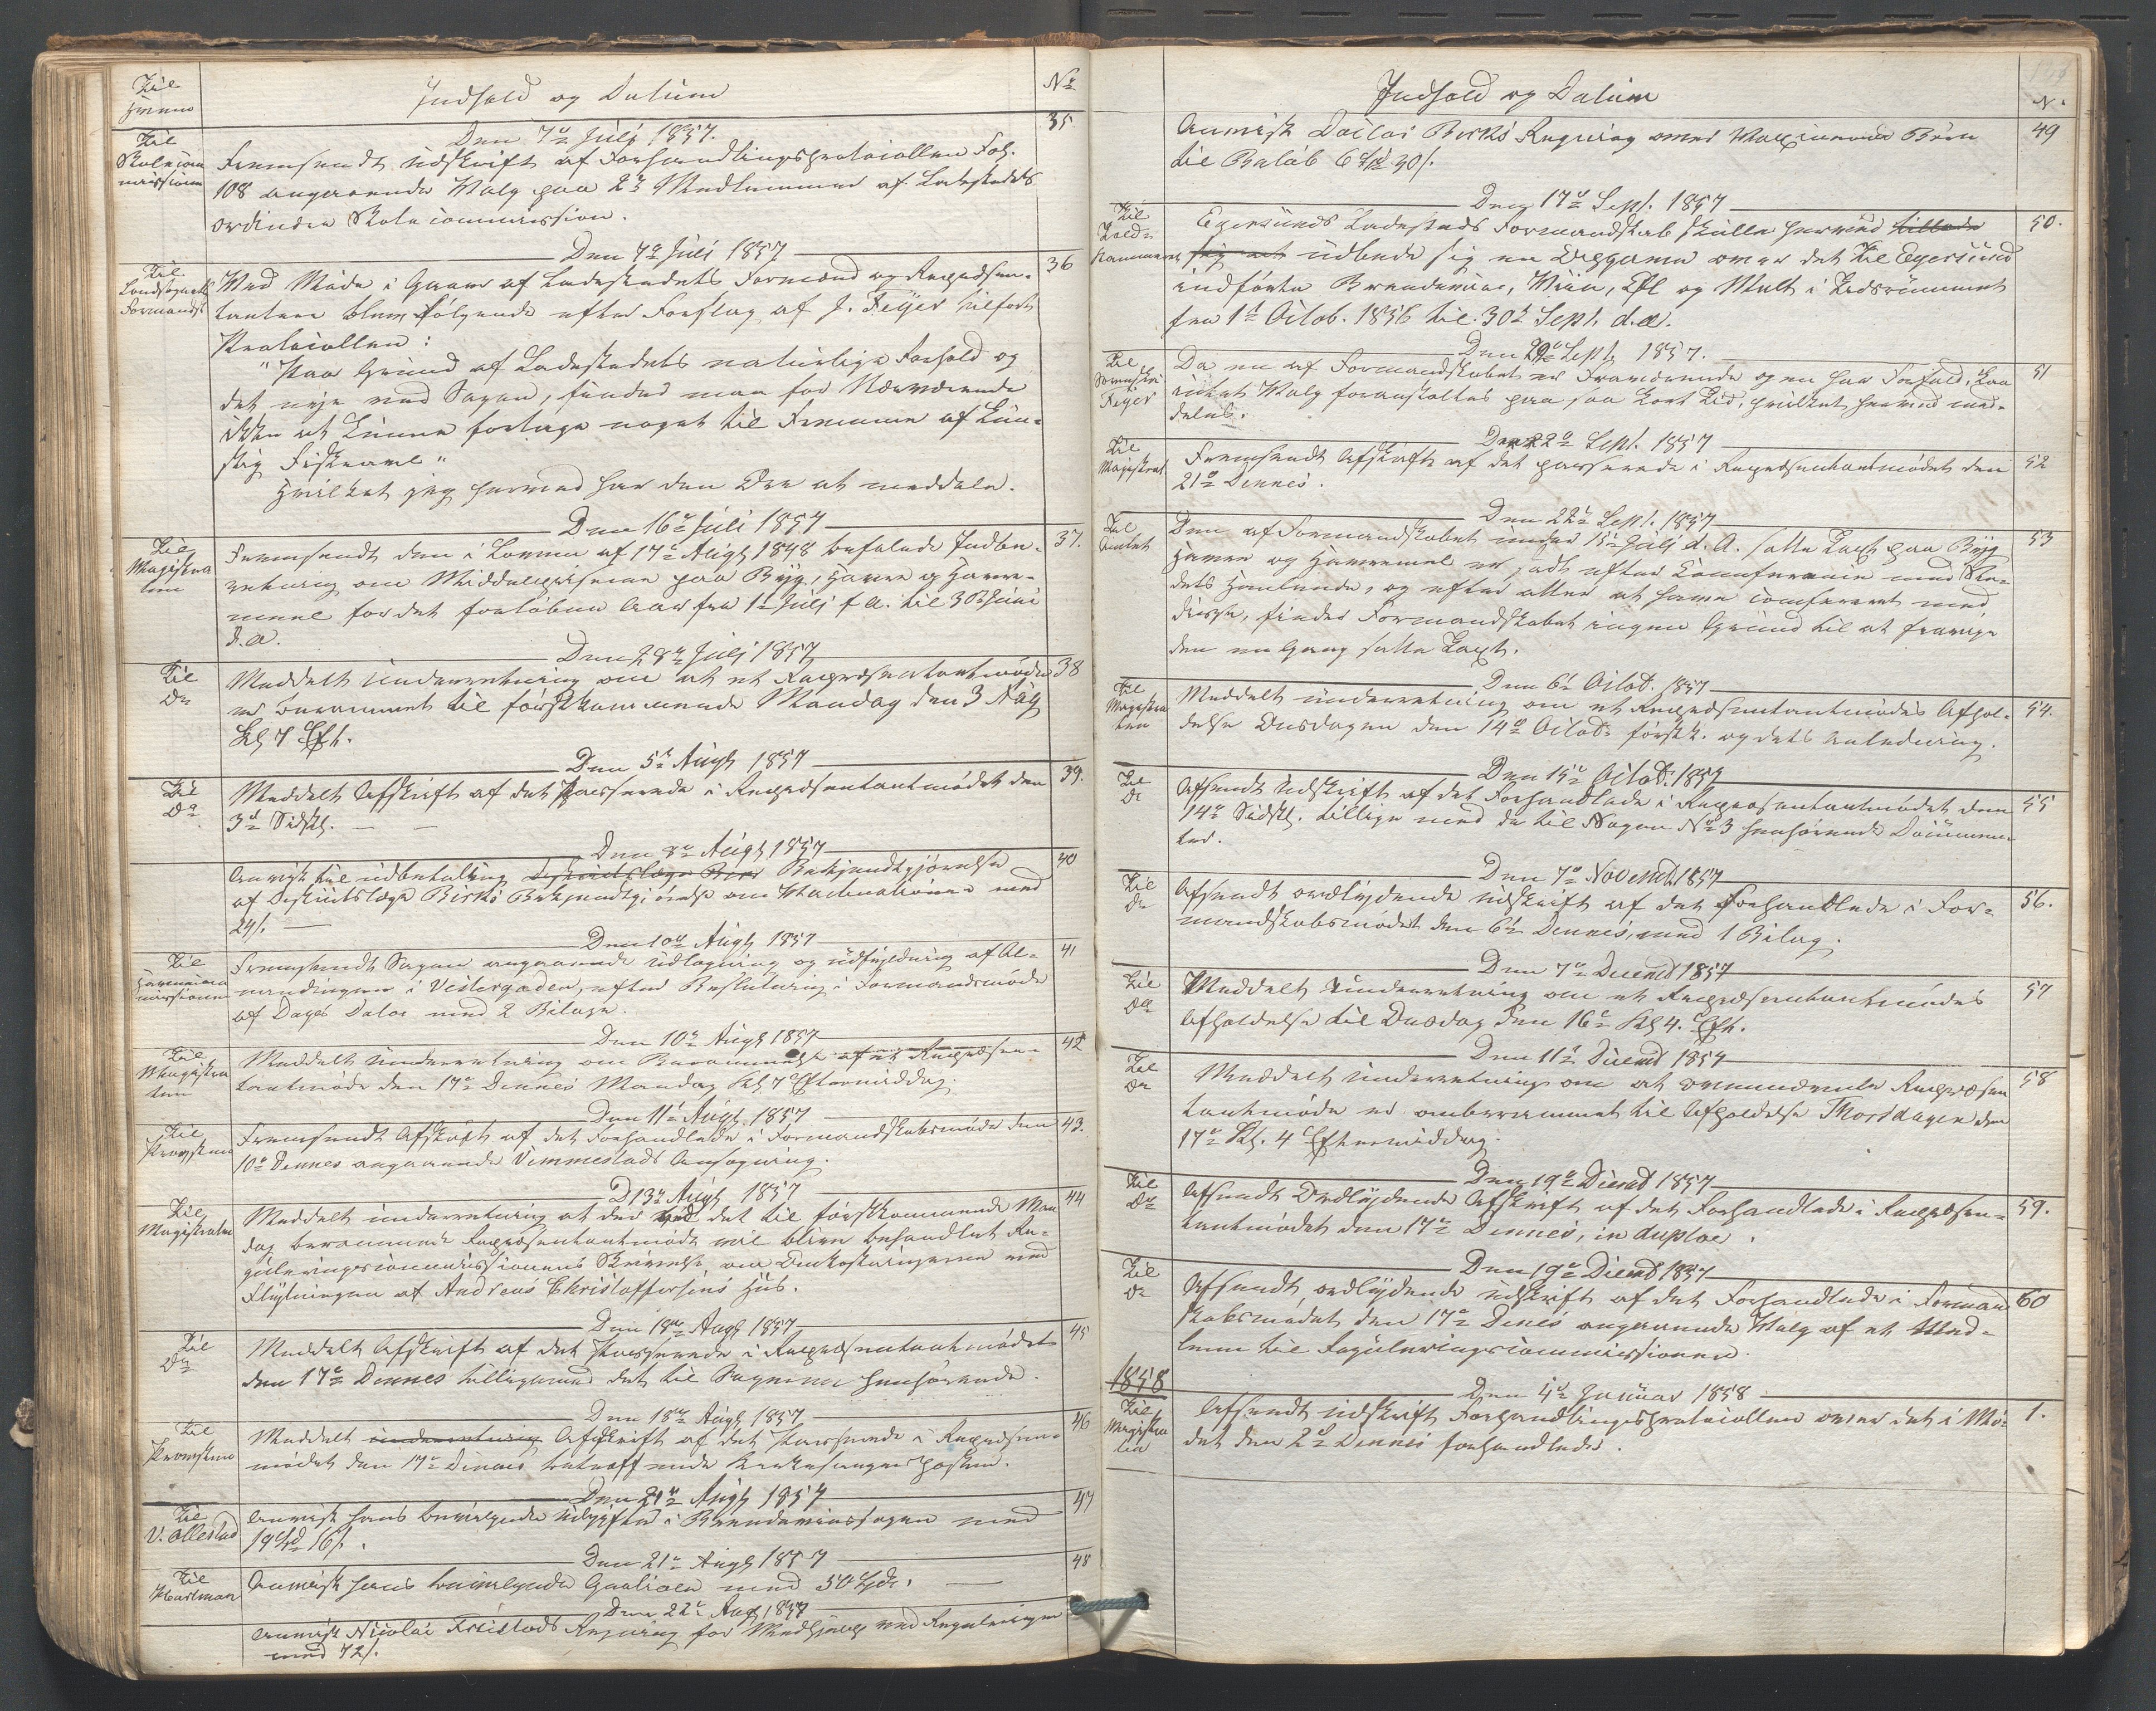 Til
Hvem
Indhold og Datum
No
Den 7de Julij 1857.
35
Til
Skolecom
missionen
Fremsendt Udskrift af Forhandlingsprotocollen Fol.
108 angaaende Valg paa 2de Medlemmer af Ladestedets
Skolecommission.
Den 7de Juli 1857
36
Til
Landsognets
Formandsk
Med Møde i Gaar af Ladestedets Formænd og Repræsen-
tantere blev følgende efter Forslag af J. Feyer tilført
Protocollen:
"Paa Grund af Ladestedets naturlige Forhold og
det nye ved Sagen, finder man for Nærværende
ikke at kunne foretage noget til Fremme af kun-
stig Fiskeavl"
Hvilket jeg herved har den Ære at meddele.
Den 16de Juli 1857
37.
Til
Magistra
ten
Fremsendt den i Loven af 17de Augs 1848 befalede Indbe-
retning om Middelpriserne paa Byg, Havre og Havre-
meel for det forløbne Aar fra 1ste Julj f.A. til 30te Juni
d.A.
Den 28de Julj 1857
38
Til
Do
Meddelt Underretning om at et Repræsentantmøde
er berammet til førstkommende Mandag den 3 Aug
Kl 7 Eft.
Den 5te Augs 1857
39.
Til
Do
Meddelt Afskrift af det Passerede i Repræsentantmødet den
3de Sidstl. — —
Den 8de Augs 1857
40
Anvist til Udbetaling Districtslæge Birk Bekjendtgjørelse
af Districtslæge Birks Bekjendtgjørelse om Vaccinationen med
24 s. —
Den 10de Augs 1857
41
Til
Havnecom
missionen
Fremsendt Sagen angaaende Udlægning og Udfyldning af Al-
mindingen i Vestergaden, efter Beslutning i Formandsmøde
af Dags Dato med 2 Bilage.
Den 10de Augs 1857
42
Til
Magistra
ten
Meddelt Underretning om Berammelse af et Repræsen-
tantmøde den 17de Dennes Mandag Kl 7 Eftermiddag.
Den 11te Augs. 1857
43.
Til
Provsten
Fremsendt Afskrift af det Forhandlede i Formandskabsmøde den
10de Dennes angaaende Vemmestads Ansøgning.
D 13de Augs 1857
44
Til
Magistraten
Meddelt Underretning at der ved det til førstkommende Man
dag berammede Repræsentantmøde vil blive behandlet Re-
guleringscommissionens Skrivelse om Omkostningerne ved
Flytningen af Andreas Christoffersens Huus.
Den 18de Augs 1857
45
Til
Do
Meddelt Afskrift af det Passerede i Repræsentantmødet
den 17de Dennes tilligemed det til Sagerne henhørende.
Den 18de Augs 1857
46
Til
Provsten
Meddelt Underretning Afskrift af det Passerede i Repræsen-
mødet den 17de Dennes betræffende Kirkesangerposten.
Den 21de Augs 1857
47
Til
V. Ollestad
Anvist hans bevilgede Udgifter i Brændeviinssagen med
19 Spd 16 s.
Den 21de Augs 1857
48
Til
Hartman
Anvist hans bevilgede Gratiale med 50 Spd. —
Den 22de Aug 1857
Anvist Nicolai Friistads Regning for Medhjælp ved Reguleringen
med 72 s.
Indhold og Datum
N.
49
Anvist Doctor Birks Regning over Vaccinerede Børn
til Beløb 6 Spd 30 s.
Den 17de Sept. 1857
50.
Til
Told-
kammeret
Egersunds Ladesteds Formandskab skulle herved tillade
sig at udbede sig en Opgave over det til Egersund
indførte Brændeviin, Viin, Øl og Malt i Tidsrummet
fra 1ste Octob. 1856 til 30te Sept. d.A.
Den 20de Sept 1857.
51
Til
Feyer
Da en af Formandskabet er Fraværende og en har Forfald, kan
intet Valg foranstaltes paa saa kort Tid, hvilket herved med-
deles.
Den 22de Sept. 1857
52
Til
Magistrat
Fremsendt Afskrift af det passerede i Repræsentantmødet den
21de Dennes.
Den 22de Sept. 1857
53
Til
Amtet
Den af Formandskabet under 15de Julj d. A. satte Taxt paa Byg
Havre og Havremel er sat efter Conference med Ste-
dets Handlende, og efter atter at have confereret med
disse, finder Formandskabet ingen Grund til at fravige
den en Gang satte Taxt.
Den 6te Octob. 1857
54.
Til
Magistra
ten
Meddelt Underretning om et Repræsentantmødes Afhol-
delse Onsdagen den 14de Octob. førstk. og dets Anledning.
Den 15de Octob. 1857
55
Til
Do
Afsendt Udskrift af det Forhandlede i Repræsentantmødet den
14de Sidstl. tillige med de til Sagen No 3 henhørende Documen-
ter.
Den 7de Novemb 1857
56.
Til
Do
Afsendt ordlydende Udskrift af det Forhandlede i For-
mandskabsmødet den 6te Dennes, med 1 Bilag.
Den 7de Decemb 1857
57
Til
Do
Meddelt Underretning om et Repræsentantmødes
Afholdelse til Onsdag den 16de Kl 4. Eft.
Den 11te Decemb 1857
58
Til
Do
Meddelt Underretning om at ovennævnte Repræsen
tantmøde er omberammet til Afholdelse Thorsdagen den
17de Kl. 4 Eftermiddag.
Den 19de Decemb 1857
59.
Til
Do
Afsendt Ordlydende Afskrift af det Forhandlede i Repræsen-
tantmødet den 17de Dennes, in duplo.
Den 19de Decemb 1857
60
Til
Do
Afsendt ordlydende Udskrift af det Forhandlede i Formand
skabsmødet den 17de Denes angaaende Valg af et Med-
lem til Reguleringscommissionen.
1858
Den 4de Januar 1858
1.
Til
Magistra
ten
Afsendt Udskrift Forhandlingsprotocollen over det i Mø-
det den 2de Dennes forhandlede.